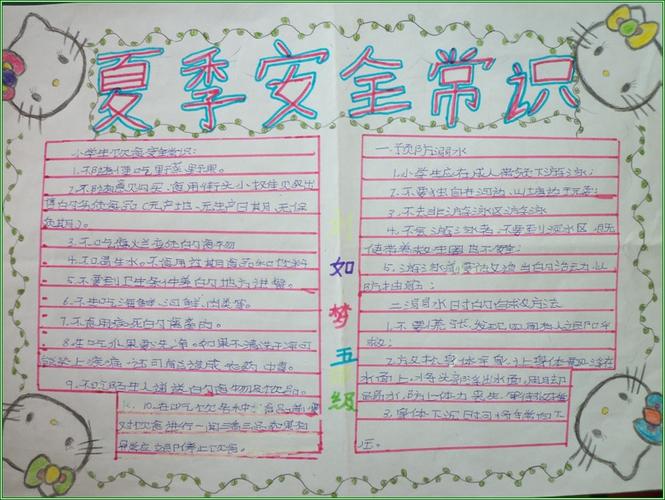 夏季安全常识
小学生饮食安全常识:
1.不随便吃野菜野果。
2.不随意购买、食用街头小摊贩出
售的劣质食品(无产地、无生产日期、无保
质期)。
3.不吃腐烂变质的食物
4.不喝生水。不食用过期食品和饮料
5.不要到卫生条件差的地方进餐。
6.不生吃海鲜、河鲜、肉类等。
7.不食用病死的禽畜肉。
8.生吃水果要洗净。如果不清洗干净可
能染上疾病,还可能造成农药中毒。
9.不吃陌生人递送的食物及饮品。
10.在吃饮
对饮食进行一闻二看三品 如果
立即停止饮食。
如
梦
五
级
一.预防溺水
1.小学生应在成人带领下游泳;
2.不要独自在河边、山塘边玩耍;
3.不去非游泳区游泳
4.不会游泳者,不要到深水区,即
使带着救生圈也不
5.游泳前要做适当的
二.溺水时的自救方法
1.不要慌张,发现四周有人立即呼
救;
2.放松身体 让身体漂浮在
水面上,将头部浮出水面,用脚
踢水,防止体力
3.身体下沉时
压。